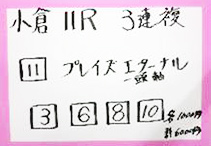 小倉 11R 3連複
11 プレイズエターナル
一頭軸
3 6 8 10 各1000円
計6000円